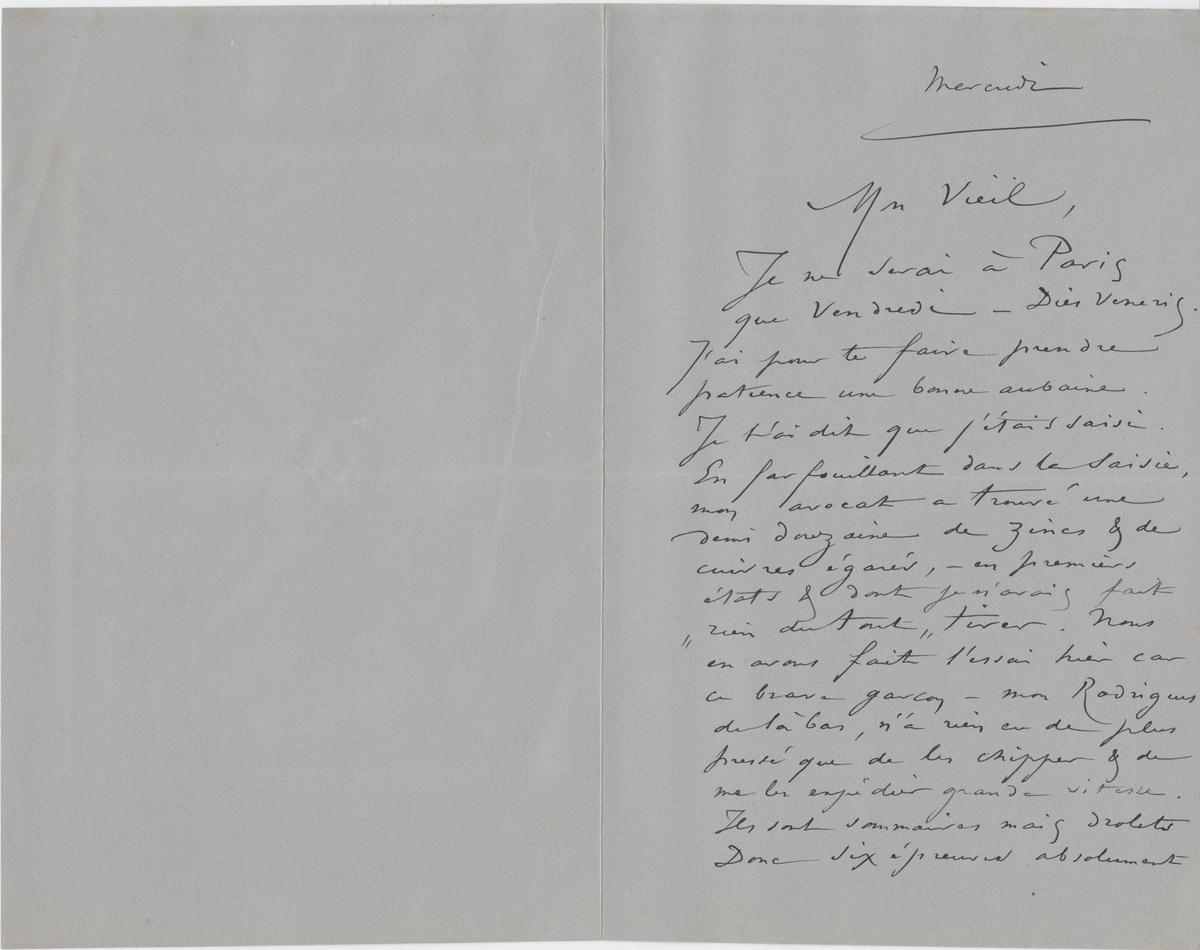 Mercredi
Mon Vieil,
Je ne serai à Paris
que Vendredi – Diès Veneris.
J'ai pour te faire prendre
patience une bonne aubaine.
Je t'ai dit que j'étais saisi.
En farfouillant dans la Saisie,
mon avocat a trouvé une
demi douzaine de zincs & de
cuivres égarés, – en premiers
états & dont je n'avais fait
„ rien du tout „ tirer. Nous
en avons fait l'essai hier car
ce brave garçon – mon Rodrigues
de là bas, n'a rien eu de plus
pressé que de les chipper & de
me les expédier grande vitesse.
Ils sont sommaires mais drolets
Donc six épreuves absolument